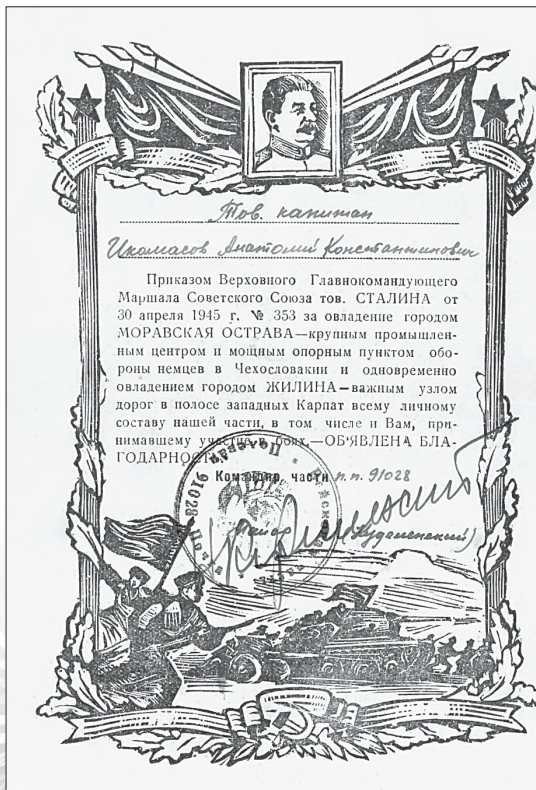 Тов. капитан
Икомасов Анатолий Константинович
Приказом Верховного Главнокомандующего
Маршала Советского Союза тов. СТАЛИНА от
30 апреля 1945 г. № 353 за овладение городом
МОРАВСКАЯ ОСТРАВА—крупным промышлен-
ным центром и мощным опорным пунктом обо-
роны немцев в Чехословакии и одновременно
овладением городом ЖИЛИНА—важным узлом
дорог в полосе западных Карпат всему личному
составу нашей части, в том числе и Вам, при-
нимавшему участие в боях,—ОБ'ЯВЛЕНА БЛА-
ГОДАРНОСТЬ
Командир части п.п. 91028
91028